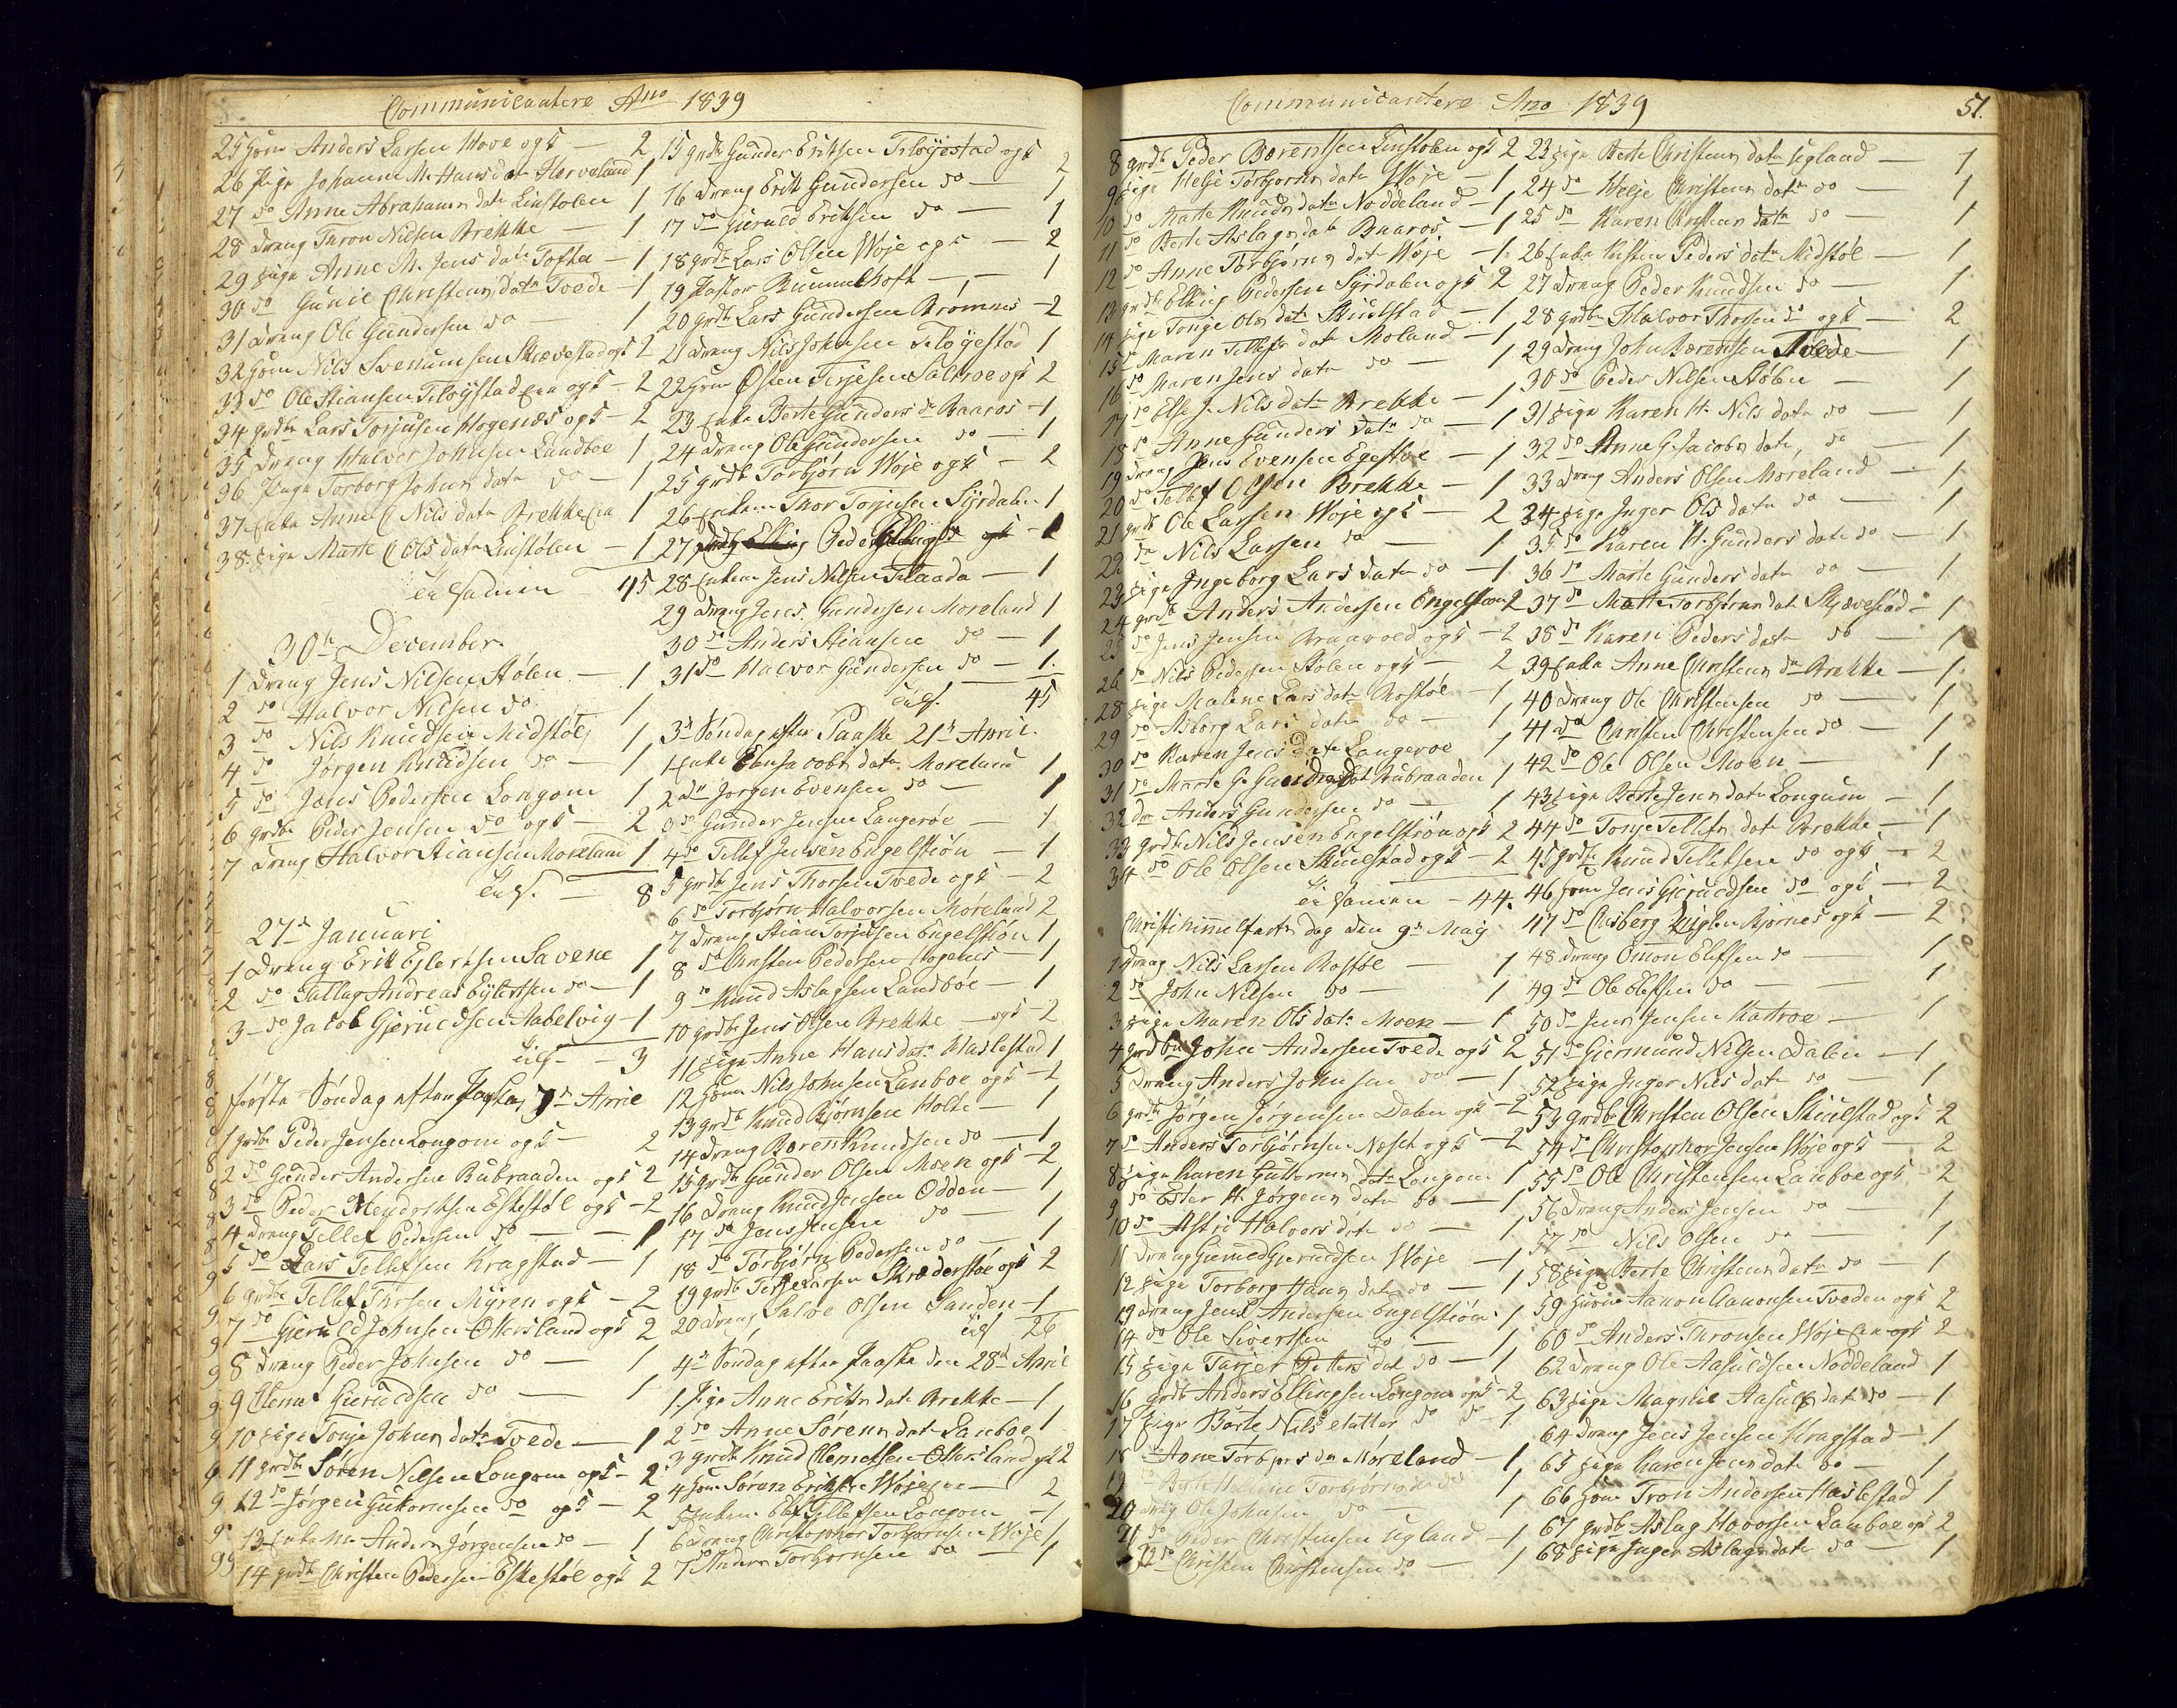 Communicantere Ano 1839
25 Huus Anders Larsen Hove ogk — 2
26 Pige Johanne M. Hansdatr Herreland 1
27 do Anne Abrahams datr Linstølen 1
28 Dreng Thron Nilsen Brekke — 1
29 Pige Anne M. Jens datr Tofta — 1
30 do Gunil Christens datr Tvede — 1
31 Dreng Ole Gundersen do — 1
32 Huus Nils Svenumsen Skævestad ogk 2
33 do Ole Stiansen Tiløystad ogk — 2
34 grdbr Lars Torjusen Hogenæs ogk — 2
35 Dreng Halvor Johnsen Landboe 1
36 Pige Torborg Johns datr do — 1
37 Enke Anne C Nils datr Brekke 1
38 Pige Marte C Ols datr Linstølen — 1
45
30te December
1 Dreng Jens Nilsen Stølen — 1
2 do Halvor Nilsen do 1
3 do Nils Knudsen Midstøl 1
4 do Jørgen Knudsen do — 1
5 do Jens Pedersen Longom 1
6 grdbr Peder Jensen do ogk — 2
7 Dreng Halvor Stiansen Moreland 1
8
27de Januari
1 Dreng Erik Ejlertsen Savene 1
2 do Tallag Andreas Eylertsen do — 1
3 do Jacob Gjeruldsen Nabelvig — 1
3
første Søndag efter Paaske 7de April
1 grdbr Peder Jensen Longom ogk — 2
2 do Gunder Andersen Rubraaden ogk 2
3 do Peder Hendriksen Eskestøl ogk — 2
4 Dreng Tellef Pedersen do — 1
5 do Lars Tellefsen Kragstad — 1
6 grdbr Tellef Thorsen Myren ogk — 2
7 do Gjeruld Johnsen Ottersland ogk 2
8 Dreng Peder Johnsen do — 1
9 Clemet Gieruldsen do — 1
10 Pige Tonje Johns datr Tvede — 1
11 grdbr Søren Nilsen Longom ogk — 2
12 do Jørgen Guttormsen do ogk — 2
13 Anders Jørgensen do — 1
14 grdbr Christen Pedersen Eskestøl ogk 2
15 grdbr Gunder Eriksen Tiløyestad ogk 2
16 Dreng Erik Gundersen do — 1
17 do Gieruld Eriksen do — 1
18 grdbr Lars Olsen Woje ogk — 2
19 Pastor Rummelhoff — 1
20 grdbr Lars Gundersen Brømnes — 2
21 Dreng Nils Johnsen Tiløyestad 1
22 Huus Osten Terjesen Saltroe ogk 2
23 Enke Berte Gunders dr Baaros — 1
24 Dreng Ole Gundersen do — 1
25 grdbr Torbjørn Woje ogk — 2
26 Thor Torjusen Syrdalen 1
27 Peder 1
28 Jens Nilsen Flaada — 1
29 Dreng Jens Gundersen Moreland 1
30 do Anders Stiansen do — 1
31 do Halvor Gundersen do — 1
45
3de Søndag efter Paaske 21de April
1 Enke Jacobs datr Moreland 1
2 do Jorgen Evensen do — 1
3 do Gunder Jensen Langerøe — 1
4 do Tellef Jensen Engelstiøn — 1
5 grdbr Jens Thorsen Tvede ogk — 2
6 do Torbjørn Halvorsen Moreland 2
7 Dreng Stian Torjusen Engelstiøn 1
8 do Christen Pedersen Hogenes — 1
9 do Knud Aslagsen Landbøe — 1
10 grdbr Jens Olsen Brekke — ogk — 2
11 Pige Anne Hans datr Haslestad 1
12 Huus Nils Johnsen Lanboe ogk — 2
13 grdbr Knud Bjørnsen Holte — 1
14 Dreng Børen Knudsen do — 1
15 grdbr Gunder Olsen Moen ogk — 2
16 Dreng Knud Jensen Odden — 1
17 do Jens Jensen do — 1
18 do Torbjørn Pedersen do — 1
19 grdbr Terje Larsen Skræderstøe ogk 2
20 Dreng Salve Olsen Sanden — 1
26
4de Søndag efter Paaske den 28de April
1 Pige Anne Eriks datr Brekke — 1
2 do Anne Sørens datr Lanboe 1
3 grdbr Knud Clemetsen Ottersland ogk 2
4 Huus Søren Eriksen Woje — 2
5 Elef Tellefsen Longom — 1
6 Dreng Christopher Torbjørnsen Woje 1
7 do Anders Torbjørnsen do — 1
Communicantere Ano 1839
51.
8 grdbr Peder Børentsen Linstølen ogk 2
9 Pige Helje Torbjørns datr Woje — 1
10 do Marte Knuds datr Noddeland — 1
11 do Berte Aslags datr Baaros — 1
12 do Anne Torbjørns datr Woje — 1
13 grdbr Elling Pedersen Syrdalen ogk 2
14 Pige Tonje Ols datr Skuelstad — 1
15 do Maren Tellefs datr Moland — 1
16 do Maren Jens datr do — 1
17 do Else J. Nils datr Brekke — 1
18 do Anne Gunders datr do — 1
19 Dreng Jens Evensen Egestøe — 1
20 do Tellef Olsen Brekke — 1
21 grdbr Ole Larsen Woje ogk — 2
22 do Nils Larsen do — 1
23 Pige Ingeborg Lars datr do — 1
24 grdbr Anders Andersen Engelstiøn 2
25 do Jens Jensen Braavold ogk — 2
26 do Nils Pedersen Stølen ogk — 2
28 Pige Malene Lars datr Rostøl — 1
29 do Asborg Lars datr do — 1
30 do Karen Jens datr Langeroe 1
31 do Marte G. Gunders datr Rubraaden 1
32 dr Anders Gundersen do — 1
33 grdbr Nils Jensen Engelstiøn ogk 2
34 do Ole Olsen Skuelstad ogk — 2
44
Christi himmelfarts dag den 9de Maij
1 Dreng Nils Larsen Rostøl — 1
2 do John Nilsen do — 1
3 Pige Maren Ols datr Moen — 1
4 grdbr John Andersen Tvede ogk 2
5 Dreng Anders Johnsen do — 1
6 grdbr Jørgen Jørgensen Dalen ogk — 2
7 do Anders Torbjørnsen Næset ogk — 2
8 Pige Karen Guttorms datr Longom 1
9 do Ester H. Jørgens datr do — 1
10 do Astri Halvors datr do — 1
11 Dreng Gieruld Gjeruldsen Woje — 1
12 Pige Torborg Hans datr do — 1
13 Dreng Jens Andersen Engelstiøn 1
14 do Ole Sivertsen do — 1
15 Pige Tarjer Petters dat do — 1
16 grdbr Anders Ellingsen Longom ogk — 2
17 Pige Børte Nils datter do — 1
18 do Anne Torbjørns dr Moreland — 1
19 do Torbjørns 1
20 Dreng Ole Johnsen do — 1
21 do Peder Christensen Ugland — 1
22 do Christen Christensen do — 1
23 Pige Berte Christens datr Ugland — 1
24 do Helje Christens datr do — 1
25 do Karen Christens datr do — 1
26 Enke Kirsten Peders datr Midstøl — 1
27 Dreng Peder Knudsen do — 1
28 grdbr Halvor Thorsen do ogk — 2
29 Dreng John Børentsen Tvede — 1
30 do Peder Nilsen Stølen — 1
31 Pige Karen H. Nils datr do — 1
32 do Anne G. Jacobs datr, do — 1
33 Dreng Anders Olsen Moreland — 1
34 Pige Inger Ols datr do — 1
35 do Karen H. Gunders datr do — 1
36 do Marte Gunders datr do — 1
37 do Marte Torbjørns dat Skjævestad — 1
38 do Karen Peders datr do — 1
39 Enke Anne Christens dr Brekke — 1
40 Dreng Ole Christensen do — 1
41 do Christen Christensen do — 1
42 do Ole Olsen Moen — 1
43 Pige Berte Jens datr Longum — 1
44 do Tonje Tellefs datr Brekke — 1
45 grdbr Knud Tellefsen do ogk — 2
46 Huus Jens Gjeruldsen do ogk — 2
47 do Bjørnes ogk — 2
48 Dreng Omon Elefsen do — 1
49 do Ole Elefsen do — 1
50 do Jens Jensen Kattroe — 1
51 do Giermund Nilsen Dalen — 1
52 Pige Inger Nils datr do — 1
53 grdbr Christen Olsen Skuelstad ogk 2
54 do Christopher Jensen Woje ogk — 2
55 do Ole Christensen Lanboe ogk — 2
56 Dreng Anders Jensen do — 1
57 do Nils Olsen do — 1
58 Pige Berte Christens datr do — 1
59 Huus Aanon Aanonsen Tveden ogk 2
60 do Anders Thronsen Woje ogk 2
62 Dreng Ole Aasuldsen Noddeland 1
63 Pige Magnil Aasulds dat do — 1
64 Dreng Jens Jensen Kragstad — 1
65 Pige Karen Jens dat do — 1
66 Huus Tron Andersen Haslestad 1
67 grdbr Aslag Hovorsen Lanboe ogk 2
68 Pige Inger Aslags datr do — 1